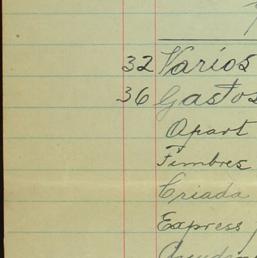 32 Varios
36 Gastos
Apart
Timbres
Criada
Express